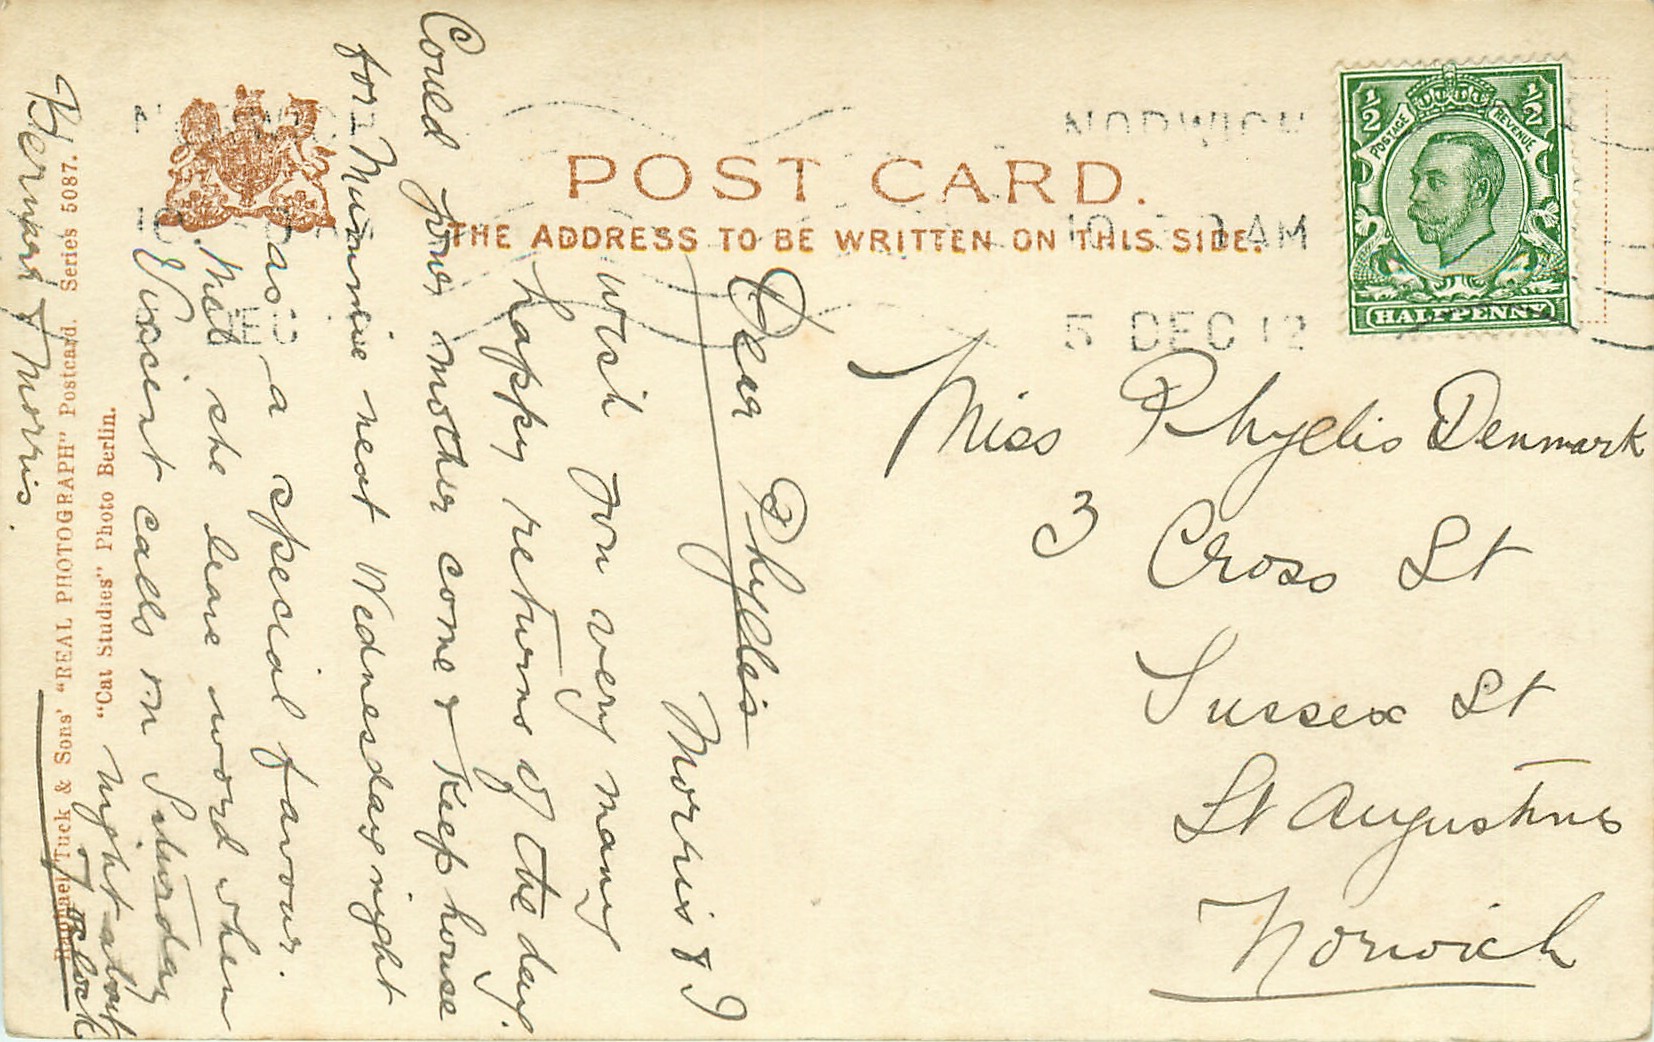 POST CARD.
THE ADDRESS TO BE WRITTEN ON THIS SIDE.
NORWICH
10 AM
5 DEC 12
1/2 1/2
POSTAGE REVENUE
HALFPENNY
Miss Phyllis Denmark
3 Cross St
Sussex St
St Augustines
Norwich
Dear Phyllis
Morris & I
wish you very many
happy returns of the day.
Could your mother come & keep house
for Mummie next Wednesday night
as a special favour.
Will she leave word when
Vincent calls on Saturday
night about
7 oclock
Bernard & Morris.
Raphael Tuck & Sons' "REAL PHOTOGRAPH" Postcard. Series 5087.
"Cat Studies" Photo Berlin.